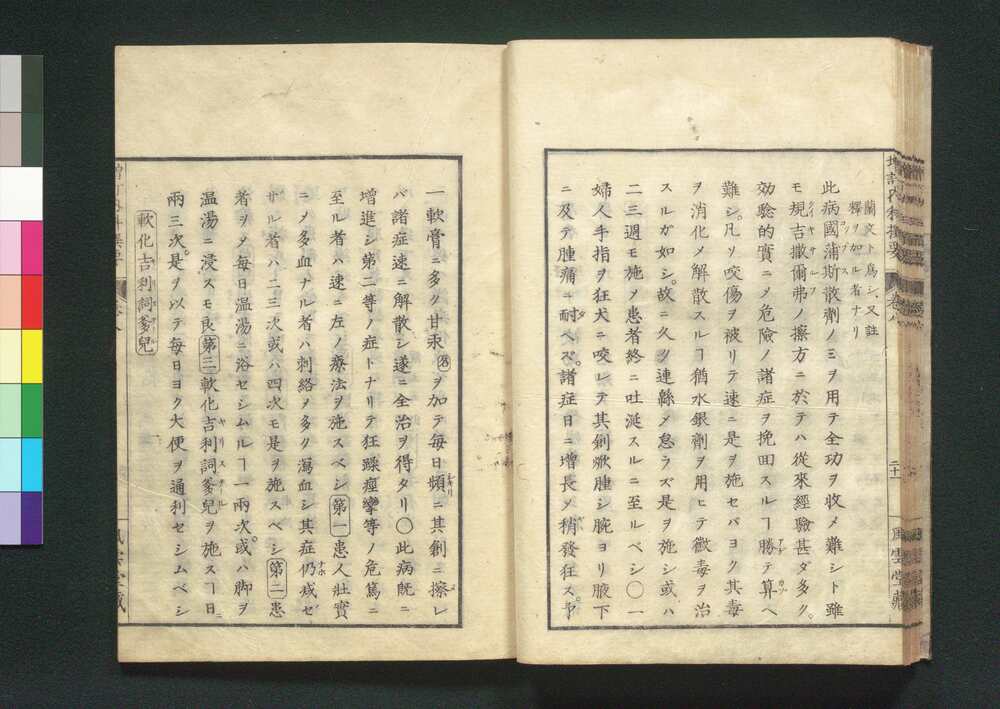 増訂内科撰要 卷八
二十一
風雲堂藏
蘭文ト爲シ、又註
釋ヲ加ル者ナリ
此病國蒲斯散劑ノミヲ用テ全功ヲ收メ難シト雖
モ規吉撒爾弗ノ擦方ニ於テハ從來經驗甚ダ多ク。
効驗的實ニメ危險ノ諸症ヲ挽回スルヿ勝テ算へ
難シ。凡ソ咬傷ヲ被リテ速ニ是ヲ施セバヨク其毒
ヲ消化メ解散スルヿ猶水銀劑ヲ用ヒテ黴毒ヲ治
スルガ如シ。故ニ久ク連緜メ怠ラズ是ヲ施シ或ハ
二三週モ施メ患者終ニ吐涎スルニ至ルベシ〇一
婦人手指ヲ狂犬ニ咬レテ其創焮腫シ腕ヨリ腋下
ニ及テ腫痛ニ耐ヘズ。諸症日ニ增長メ稍發狂ス。予
一軟膏ニ多ク甘汞ヲ加テ毎日頻ニ其創ニ擦レ
バ諸症速ニ解散シ遂ニ全治ヲ得タリ〇此病既ニ
增進シ第二等ノ症トナリテ狂躁痙攣等ノ危篤ニ
至ル者ハ速ニ左ノ療法ヲ施スベシ第一患人壯實
ニメ多血ナル者ハ刺絡メ多ク瀉血シ其症仍減ゼ
ザル者ハ二三次或ハ四次モ是ヲ施スベシ第二患
者ヲメ毎日温湯ニ浴セシムルヿ一兩次。或ハ脚ヲ
温湯ニ浸スモ良第三軟化吉利詞爹兒ヲ施スヿ日ニ
兩三次。是ヲ以テ毎日ヨク大便ヲ通利セシムベシ
軟化吉利詞爹兒